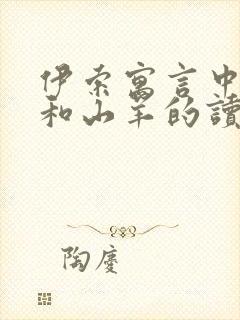 伊索寓言中
和山羊的讀
陶慶